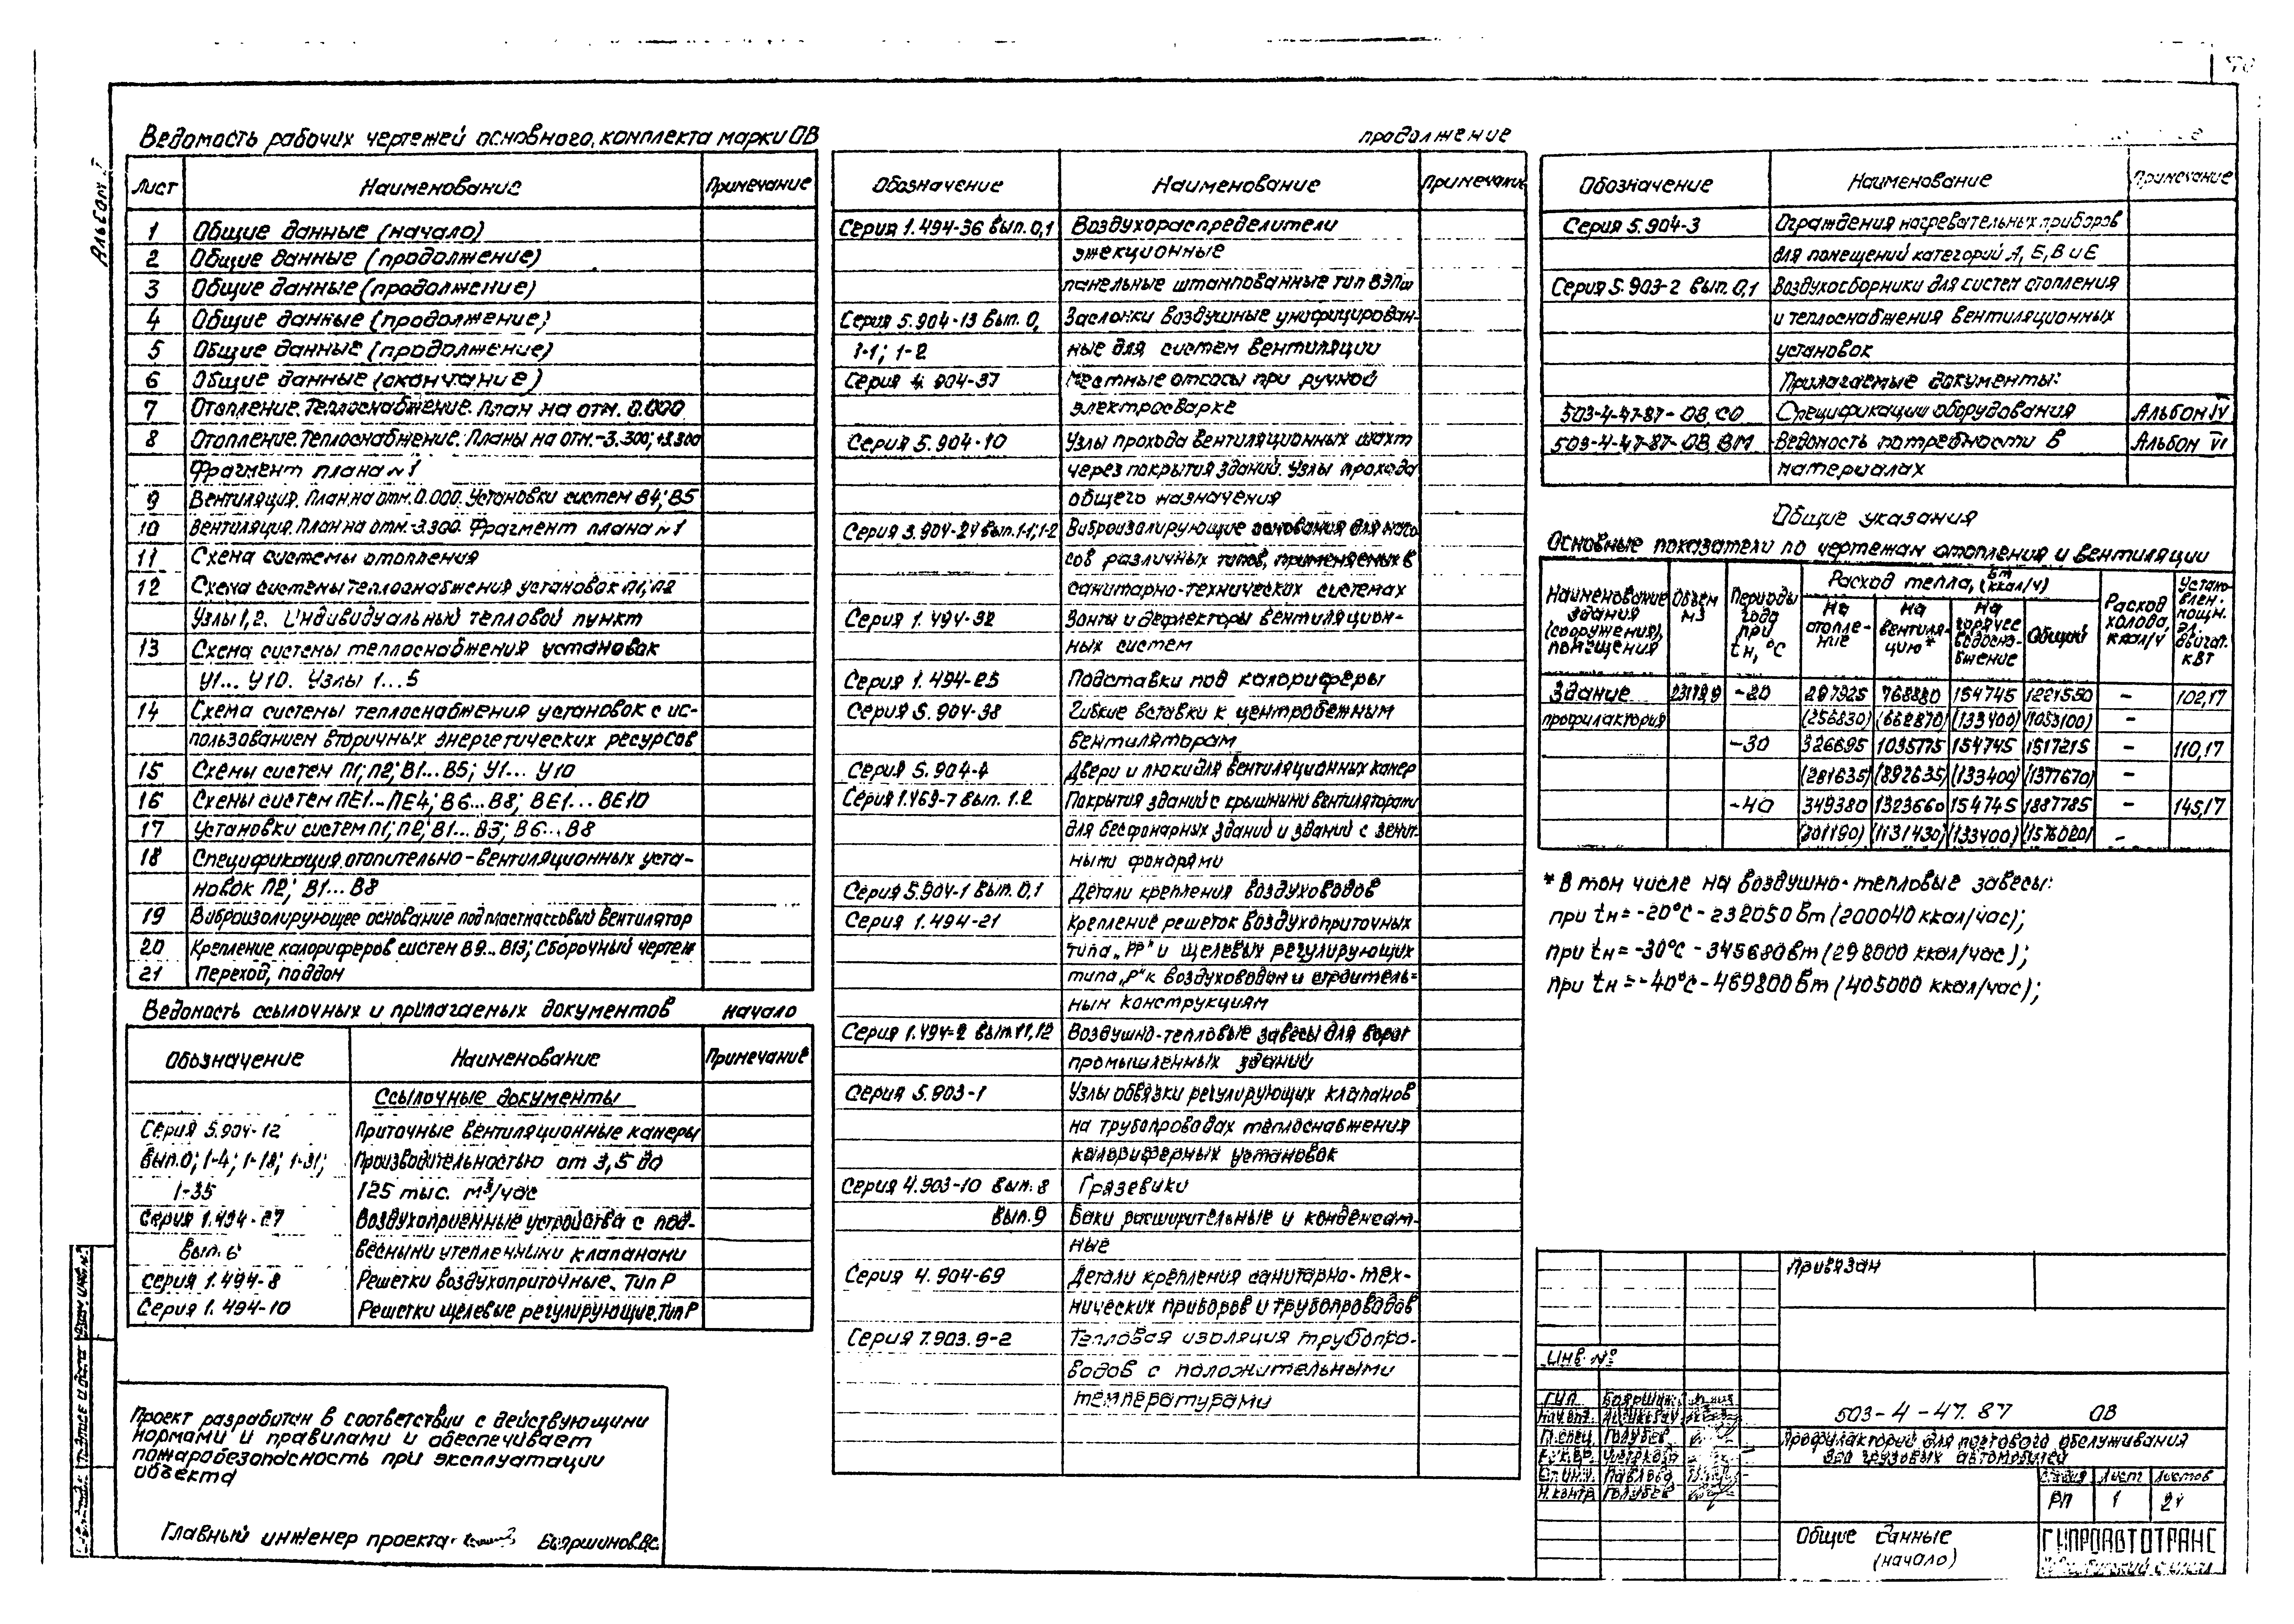 Альбом I
Ведомость рабочих чертежей основного комплекта марки ОВ
Лист Наименование Примечание
1 Общие данные (начало)
2 Общие данные (продолжение)
3 Общие данные (продолжение)
4 Общие данные (продолжение)
5 Общие данные (продолжение)
6 Общие данные (окончание)
7 Отопление. Теплоснабжение. План на отм. 0.000
8 Отопление. Теплоснабжение. Планы на отм. -3.300; +3.300
Фрагмент плана №1
9 Вентиляция. План на отм. 0.000. Установки систем В4; В5
10 Вентиляция. План на отм. -3.300. Фрагмент плана №1
11 Схема системы отопления
12 Схема системы теплоснабжения установок П1; П2
Узлы 1, 2. Индивидуальный тепловой пункт
13 Схема системы теплоснабжения установок
У1... У10. Узлы 1...5
14 Схема системы теплоснабжения установок с ис-
пользованием вторичных энергетических ресурсов
15 Схемы систем П1; П2; В1...В5; У1... У10
16 Схемы систем ПЕ1...ПЕ4; В6...В8; ВЕ1... ВЕ10
17 Установки систем П1; П2; В1... В5; В6... В8
18 Спецификация отопительно-вентиляционных уста-
новок П2; В1... В8
19 Виброизолирующее основание под пластмассовый вентилятор
20 Крепление калориферов систем В9... В13; Сборочный чертеж
21 Переход, поддон
Ведомость ссылочных и прилагаемых документов начало
Обозначение Наименование Примечание
Ссылочные документы
Серия 5.904-12 Приточные вентиляционные камеры
Вып.0; 1-4; 1-18; 1-31; Производительностью от 3,5 до
1-35 125 тыс. м³/час
Серия 1.494-27 Воздухоприемные устройства с под-
Вып. 6 весными утепленными клапанами
Серия 1.494-8 Решетки воздухоприточные. Тип Р
Серия 1.494-10 Решетки щелевые регулирующие. Тип Р
Проект разработан в соответствии с действующими
нормами и правилами и обеспечивает
пожаробезопасность при эксплуатации
объекта
Главный инженер проекта Бояршинов В.С.
продолжение
Обозначение Наименование Примечание
Серия 1.494-36 вып. 0,1 Воздухораспределители
эжекционные
панельные штампованные тип ВЭПш
Серия 5.904-13 Вып. 0, Заслонки воздушные унифицирован-
1-1; 1-2 ные для систем вентиляции
Серия 4.904-37 Местные отсосы при ручной
электросварке
Серия 5.904-10 Узлы прохода вентиляционных шахт
через покрытия зданий. Узлы прохода
общего назначения
Серия 3.904-24 вып. 1-1; 1-2 Виброизолирующие основания для насо
сов различных типов, применяемых в
санитарно-технических системах
Серия 1.494-32 Зонты и дефлекторы вентиляцион-
ных систем
Серия 1.494-25 Подставки под калориферы
Серия 5.904-38 Гибкие вставки к центробежным
вентиляторам
Серия 5.904-4 Двери и люки для вентиляционных камер
Серия 1.469-7 Вып. 1.2 Покрытия зданий с крышными вентиляторами
для бесфонарных зданий и зданий с зенит-
ными фонарями
Серия 5.904-1 Вып. 0,1 Детали крепления воздуховодов
Серия 1.494-21 Крепление решеток воздухоприточных
типа „РР" и щелевых регулирующих
типа „Р" к воздуховодам и строитель-
ным конструкциям
Серия 1.494-2 Вып. 11,12 Воздушно-тепловые завесы для ворот
промышленных зданий
Серия 5.903-1 Узлы обвязки регулирующих клапанов
на трубопроводах теплоснабжения
калориферных установок
Серия 4.903-10 вып. 8 Грязевики
вып.9 Баки расширительные и конденсат-
ные
Серия 4.904-69 Детали крепления санитарно-тех-
нических приборов и трубопроводов
Серия 7.903.9-2 Тепловая изоляция трубопро-
водов с положительными
температурами
Обозначение Наименование Примечание
Серия 5.904-3 Ограждения нагревательных приборов
для помещений категорий А, Б, В и Е
Серия 5.903-2 вып. 0,1 Воздухосборники для систем отопления
и теплоснабжения вентиляционных
установок
Прилагаемые документы:
503-4-47-87-ОВ.СО Спецификации оборудования Альбом IV
503-4-47-87-ОВ.ВМ Ведомость потребности в Альбом VI
материалах
Общие указания
Основные показатели по чертежам отопления и вентиляции
Наименование здания (сооружения), помещения Объем м3 Периоды года при tн, °С Расход тепла, Вт (ккал/ч) Расход холода, ккал/ч Установлен. мощн. эл. двигат. кВт
На отопле-ние На вентиля-цию* На горячее водосна-бжение Общий
Здание 23172,9 -20 297925 768880 154745 1221550 - 102,17
профилактория (256830) (662870) (133400) (1053100) -
-30 326695 1035775 154745 1517215 - 110,17
(281635) (892635) (133400) (1377670) -
-40 349380 1323660 154745 1887785 - 145,17
(301190) (1131430) (133400) (1576020) -
* В том числе на воздушно-тепловые завесы:
при tн = -20°С - 232050 Вт (200040 ккал/час);
при tн = -30°С - 345680 Вт (298000 ккал/час);
при tн = -40°С - 469800 Вт (405000 ккал/час);
Привязан
Инв. №
ГИП Бояршин.
Нач.отд.
Гл.спец. Голубев
Ст.инж. Павлова
Н.контр. Голубев
503-4-47.87 ОВ
Профилакторий для постового обслуживания
300 грузовых автомобилей
Стадия Лист Листов
РП 1 21
Общие данные
(начало)
ГИПРОАВТОТРАНС